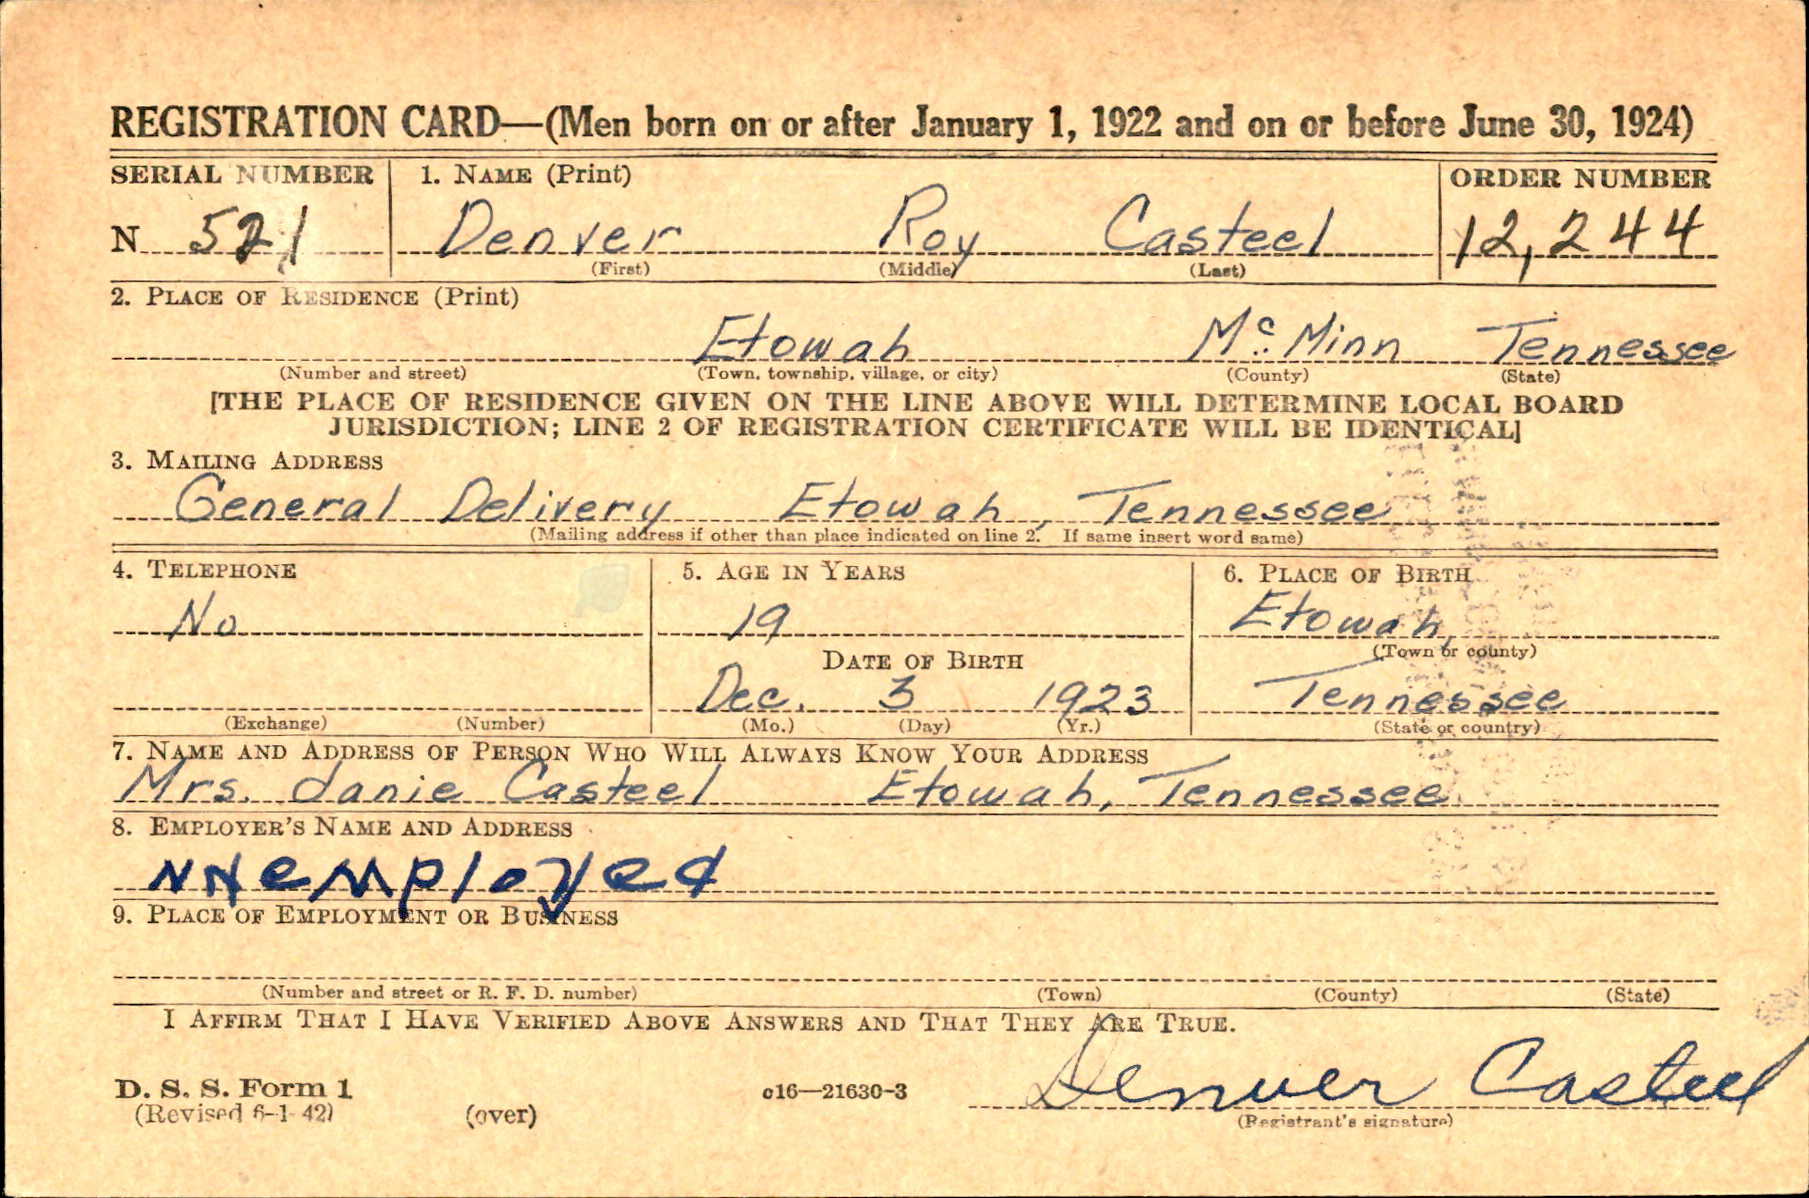 REGISTRATION CARD—(Men born on or after January 1, 1922 and on or before June 30, 1924)
SERIAL NUMBER 1. NAME (Print) ORDER NUMBER
N 521 Denver Roy Casteel 12,244
(First) (Middle) (Last)
2. PLACE OF RESIDENCE (Print)
Etowah Mc. Minn Tennessee
(Number and street) (Town, township, village, or city) (County) (State)
[THE PLACE OF RESIDENCE GIVEN ON THE LINE ABOVE WILL DETERMINE LOCAL BOARD
JURISDICTION; LINE 2 OF REGISTRATION CERTIFICATE WILL BE IDENTICAL]
3. MAILING ADDRESS
General Delivery Etowah, Tennessee
(Mailing address if other than place indicated on line 2. If same insert word same)
4. TELEPHONE 5. AGE IN YEARS 6. PLACE OF BIRTH
No 19 Etowah,
(Town or county)
DATE OF BIRTH
Dec. 3 1923 Tennessee
(Exchange) (Number) (Mo.) (Day) (Yr.) (State or country)
7. NAME AND ADDRESS OF PERSON WHO WILL ALWAYS KNOW YOUR ADDRESS
Mrs. Janie Casteel Etowah, Tennessee
8. EMPLOYER'S NAME AND ADDRESS
unemployed
9. PLACE OF EMPLOYMENT OR BUSINESS
(Number and street or R. F. D. number) (Town) (County) (State)
I AFFIRM THAT I HAVE VERIFIED ABOVE ANSWERS AND THAT THEY ARE TRUE.
D. S. S. Form 1
(Revised 6-1-42) (over) c16—21630-3 Denver Casteel
(Registrant's signature)